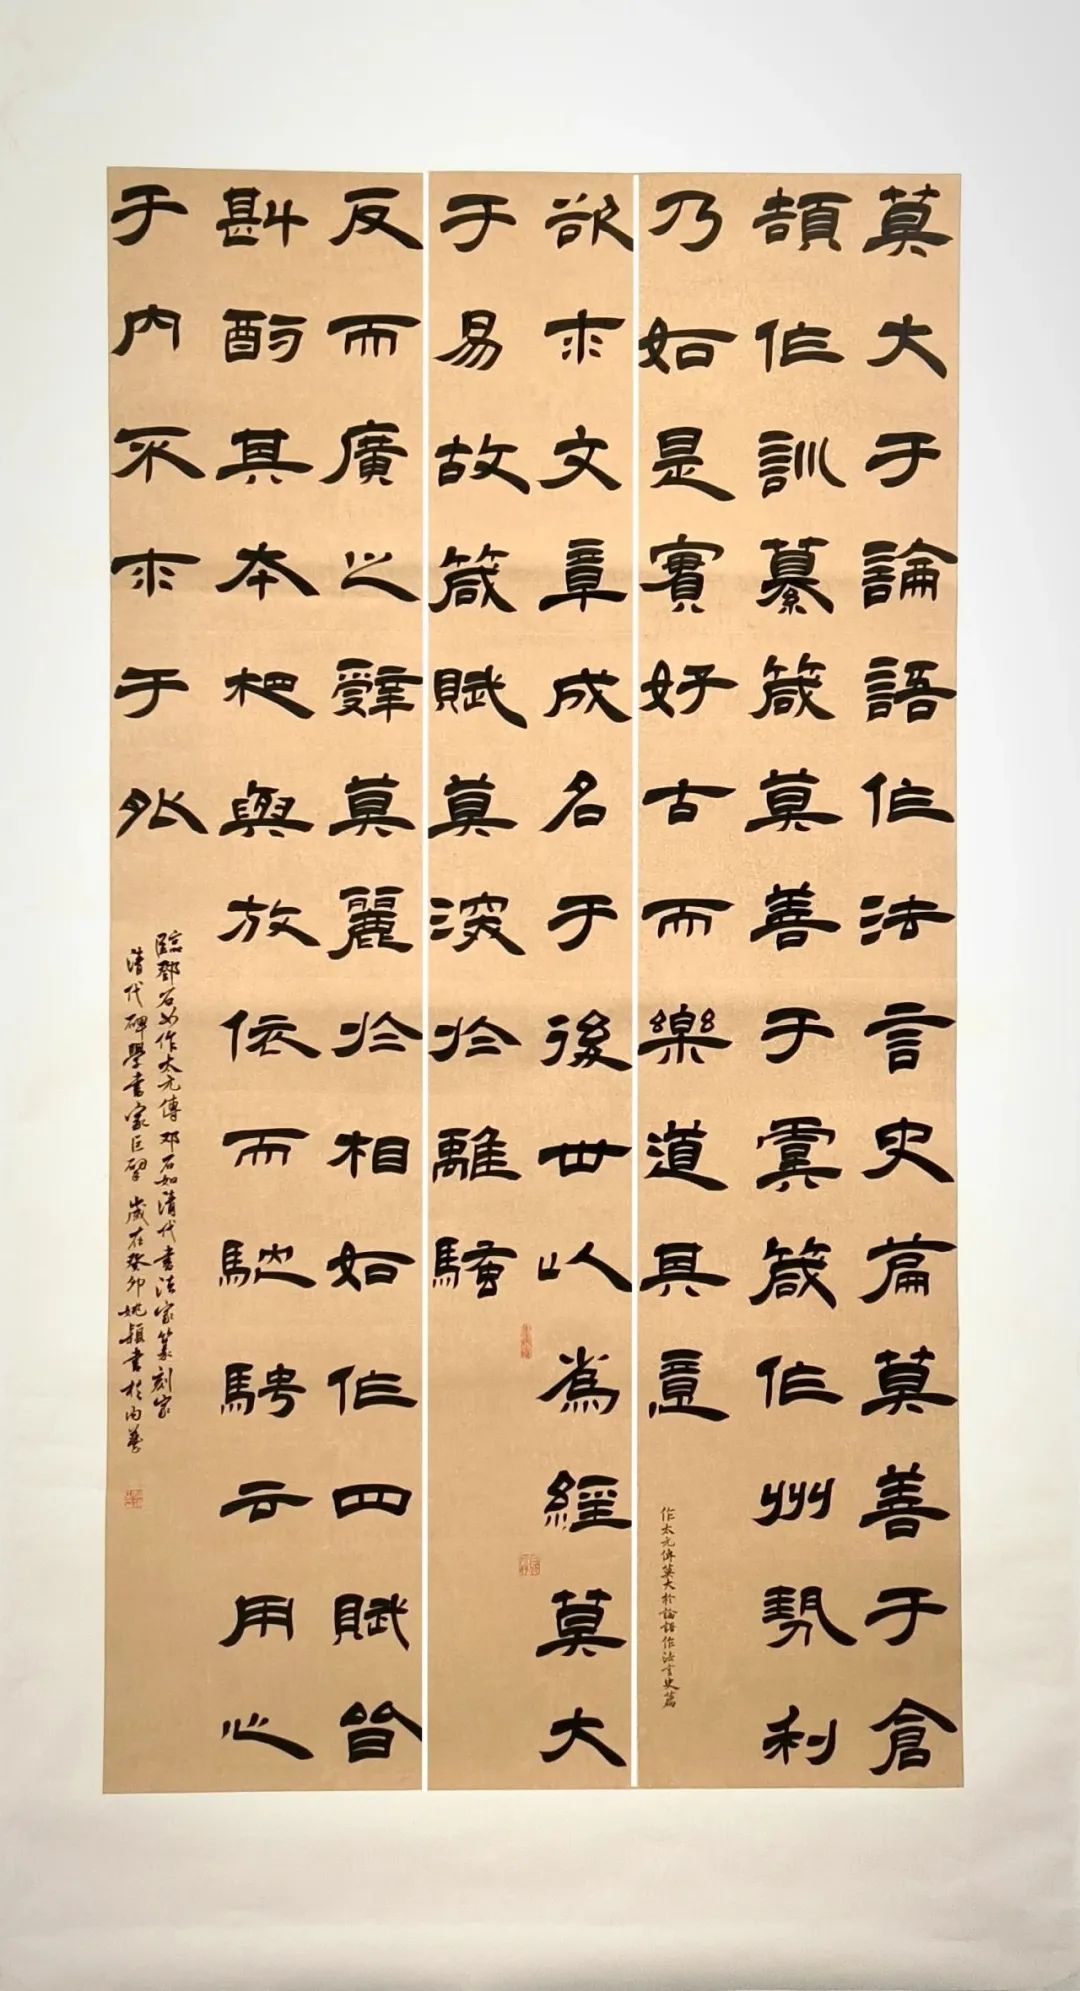 莫大于論語作法言史篇莫善于倉
頡作訓纂箴莫善于虞箴作州勢利
乃如是實好古而樂道其意
作太元傳莫大於論語作法言史篇
欲求文章成名于後世以為經莫大
于易故箴賦莫深於離騷
反而廣之辭莫麗於相如作四賦皆
斟酌其本相與放依而馳騁云用心
于内不求于外
臨鄧石如作太元傳邓石如清代書法家篆刻家
清代碑學書家巨擘歲在癸卯姚穎書於内蒙